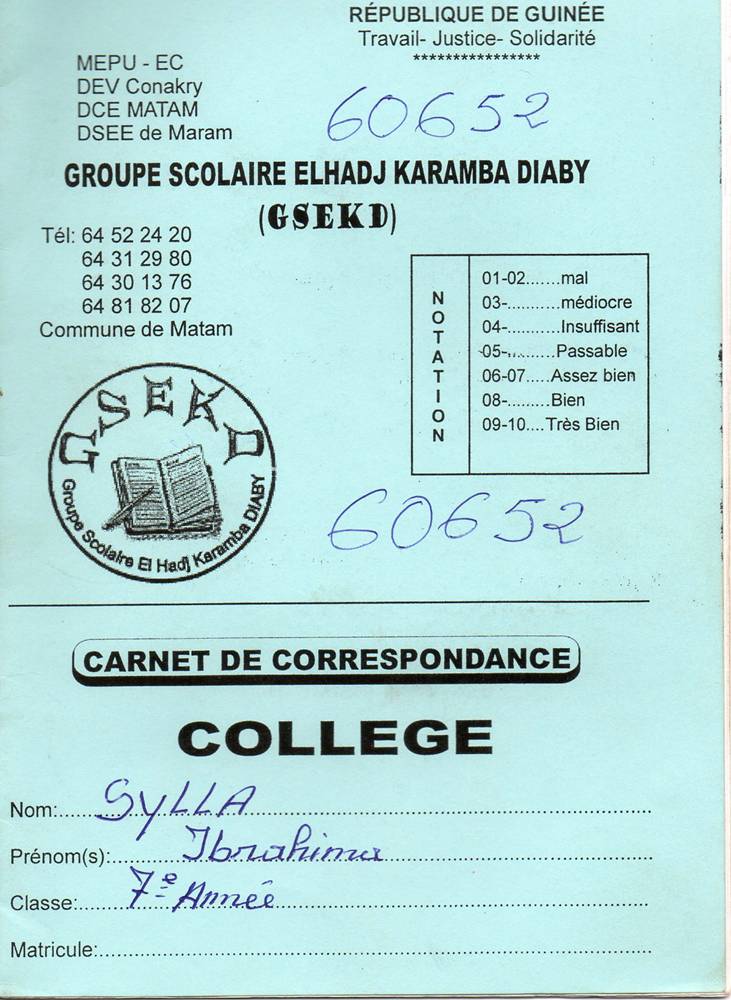 RÉPUBLIQUE DE GUINÉE
Travail- Justice- Solidarité
****************
MEPU - EC
DEV Conakry
DCE MATAM
DSEE de Maram
60652
GROUPE SCOLAIRE ELHADJ KARAMBA DIABY
(GSEKD)
Tél: 64 52 24 20
64 31 29 80
64 30 13 76
64 81 82 07
Commune de Matam
NOTATION
01-02.......mal
03-..........médiocre
04-..........Insuffisant
05-..........Passable
06-07.....Assez bien
08-.........Bien
09-10....Très Bien
GSEKD
Groupe Scolaire El Hadj Karamba DIABY
60652
CARNET DE CORRESPONDANCE
COLLEGE
Nom: SYLLA
Prénom(s): Ibrahima
Classe: 7e Année
Matricule: